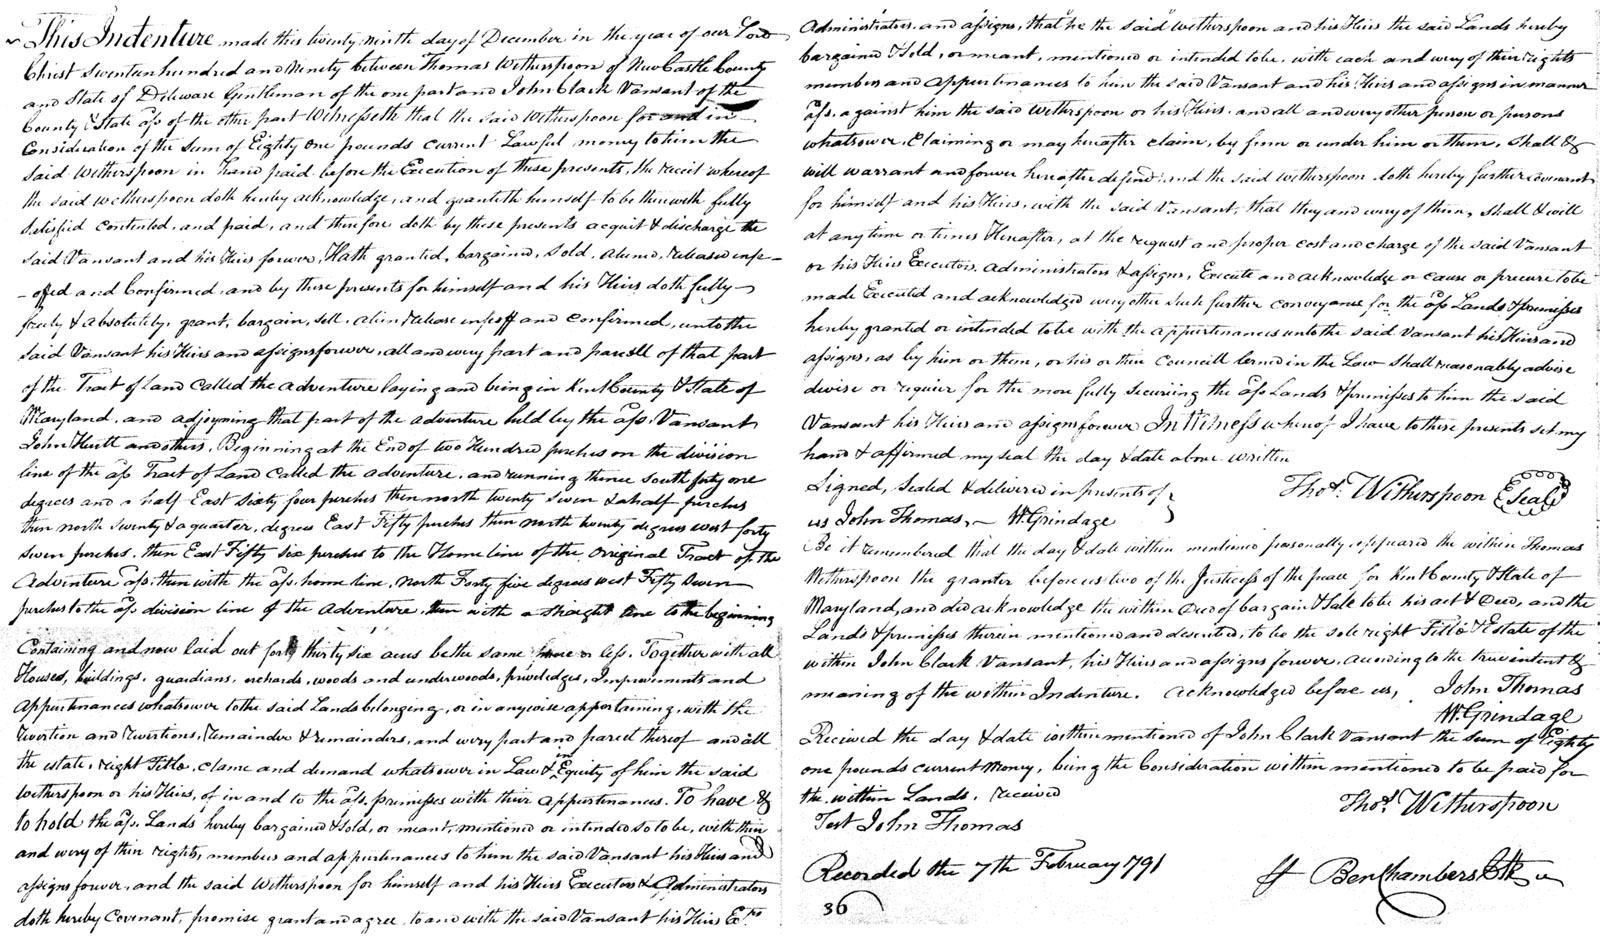 This Indenture made this twenty ninth day of December in the year of our Lord
Christ Seventeen hundred and Ninety between Thomas Witherspoon of New Castle County
and State of Delaware Gentleman of the one part and John Clark Vansant of the
County & State afs of the other part Witnesseth that the said Witherspoon for and in
Consideration of the Sum of Eighty one pounds current Lawful money to him the
said Witherspoon in hand paid before the Execution of these presents, the receit whereof
the said witherspoon doth hereby acknowledge, and granteth himself to be therewith fully
satisfied contented, and paid, and therefore doth by these presents acquit & discharge the
said Vansant and his Heirs forever, Hath granted, bargained, Sold, aliened, released enfe-
-offed and Confirmed, and by these presents for himself and his Heirs doth fully
freely & absolutely, grant, bargain, sell, alien release enfeoff and confirmed, unto the
said Vansant his Heirs and assigns forever, all and every part and parcell of that part
of the Tract of Land Called the adventure laying and being in Kent County & State of
Maryland, and adjoyning that part of the adventure held by the afs. Vansant
John Hurtt and others, Beginning at the End of two Hundred perches on the division
line of the afs Tract of Land called the adventure, and running thence South forty one
degrees and a half East Sixty four perches then north twenty seven & a half perches
then north Seventy & a quarter, degrees East Fifty perches then north twenty degrees west forty
seven perches, then East Fifty six perches to the Home line of the Original Tract of the
Adventure afs. then with the afs. home line, North Forty five degrees west Fifty seven
perches to the afs division line of the Adventure, then with a straight line to the beginning
Containing and now laid out for thirty six acres be the same more or less. Together with all
Houses, buildings, guardians, orchards, woods and underwoods, priviledges, Improvements and
appurtenances whatsoever to the said Lands belonging, or in anywise appertaining, with the
revertion and revertions, remainder & remainders, and every part and parcel thereof and all
the estate, right Title, clame and demand whatsoever in Law & in Equity of him the said
Witherspoon or his Heirs, of in and to the afs. premisses with their appurtenances. To have &
to hold the afs. Lands hereby bargained & Sold, or meant, mentioned or intended so to be, with their
and every of their rights, members and appurtenances to him the said Vansant his Heirs and
assigns forever, and the said Witherspoon for himself and his Heirs Executors & Administrators
doth hereby Covenant, promise grant and agree, to and with the said Vansant his Heirs Exrs
Administrators, and assigns, that he the said witherspoon and his Heirs the said Lands hereby
bargained & Sold, or meant, mentioned or intended to be, with each and every of their rights
members and appurtenances to him the said Vansant and his Heirs and assigns in manner
afs. against him the said Witherspoon or his Heirs, and all and every other person or persons
whatsoever, Claiming or may hereafter claim, by from or under him or them, Shall &
will warrant and forever hereafter defend; and the said witherspoon doth hereby further covenant
for himself and his Heirs, with the said Vansant, that they and every of them, shall & will
at any time or times Hereafter, at the request and proper cost and charge of the said Vansant
or his Heirs Executors, administrators & assigns, Execute and acknowledge or cause or procure to be
made Executed and acknowledged every other such further conveyance for the afs Lands & premisses
hereby granted or intended to be with the appurtenances unto the said Vansant his Heirs and
assigns, as by him or them, or his or their Councill lerned in the Law shall reasonably advise
devise or requier for the more fully secureing the afs Lands & premisses to him the said
Vansant his Heirs and assigns forever In Witness whereof I have to these presents set my
hand & affirmed my seal the day & date above written
Signed, Sealed & delivered in presents of
us John Thomas, W. Grindage
Thos. Witherspoon Seal
Be it remembered that the day & date within mentioned personally appeared the within Thomas
Witherspoon the granter before us two of the Justicess of the peace for Kent County & State of
Maryland, and did acknowledge the within Deed of bargain & Sale to be his act & Deed, and the
Lands & premisses therein mentioned and descrited, to be the sole right Title & Estate of the
within John Clark Vansant, his Heirs and assigns forever, according to the true intent &
meaning of the within Indenture. acknowledged before us, John Thomas
W. Grindage
Received the day & date within mentioned of John Clark Vansant the Sum of Eighty
one pounds current Money, being the Consideration within mentioned to be paid for
the within Lands. received
Thos. Witherspoon
Test John Thomas
Recorded the 7th February 1791
Ben Chambers Clk
36